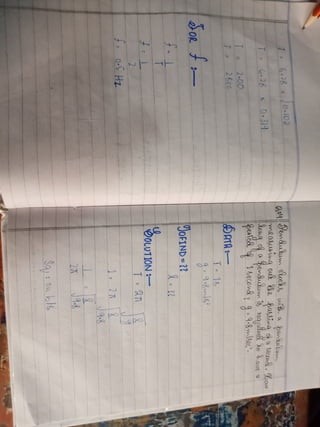 T = 6.28 × √0.102
T = 6.28 × 0.319
T = 2.00
T = 2sec
FOR f :—
f = 1/T
f = 1/2
f = 0.5 Hz
Pendulum clocks with a pendulum
measuring out the passing of a second. How
long of a pendulum is required to have a
period of 1 second, g = 9.8ms⁻².
DATA :—
T = 1s
g = 9.8ms⁻²
TOFIND = ??
l = ??
SOLUTION :—
T = 2π √l/g
1 = 2π √l/9.8
1/2π = √l/9.8
Sq. on b/s